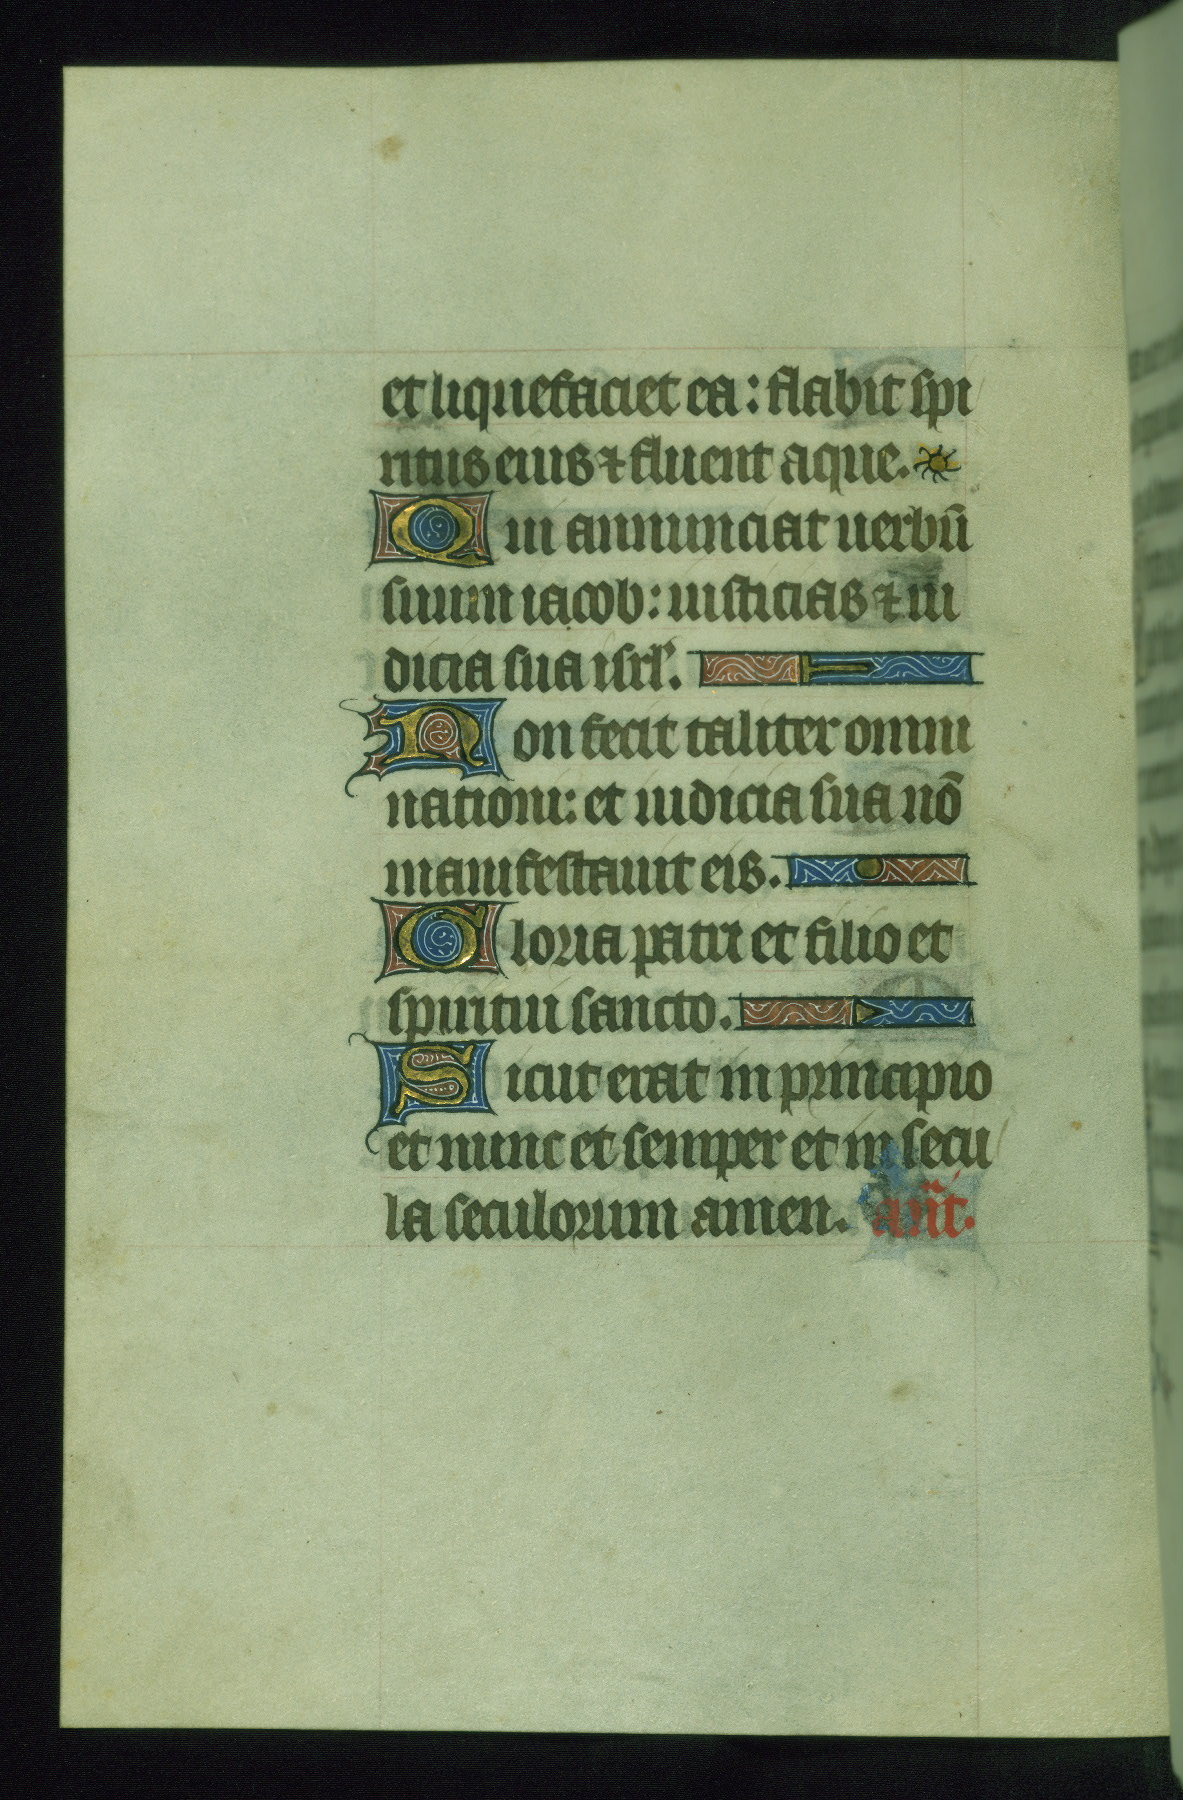 et liquefaciet ea: flabit spi
ritus eius ⁊ fluent aque.
Qui annunciat uerbū
suum iacob: iusticias ⁊ iu
dicia sua isrl'.
Non fecit taliter omni
nationi: et iudicia sua nō
manifestauit eis.
Gloria patri et filio et
spiritui sancto.
Sicut erat in principio
et nunc et semper et in secu
la seculorum amen. an̄t.